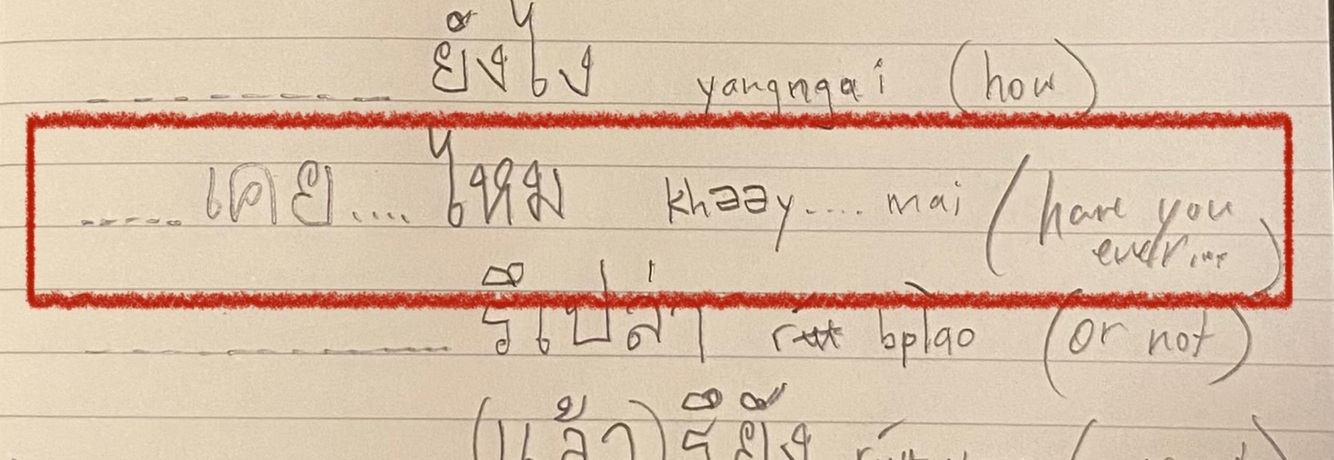 --------- ยังไง yangngai (how)
..... เคย.... ไหม khəəy.... mai (have you ever...)
--------- รึเปล่า rʉ bplao (or not)
(แล้ว) รึยัง